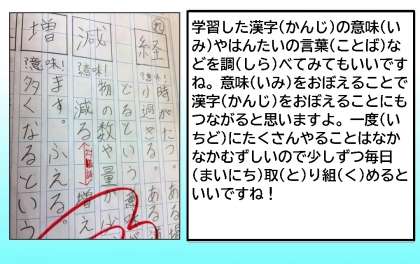 経
意味!
時がたつ。
り過ぎる。
減
意味!
物の数や量が
減る⇔増え
増
意味!
ます。ふえる。
多くなるという
学習した漢字(かんじ)の意味(い
み)やはんたいの言葉(ことば)な
どを調(しら)べてみてもいいです
ね。意味(いみ)をおぼえることで
漢字(かんじ)をおぼえることにも
つながると思いますよ。一度(い
ちど)にたくさんやることはなか
なかむずしいので少しずつ毎日
(まいにち)取(と)り組(く)めると
いいですね!